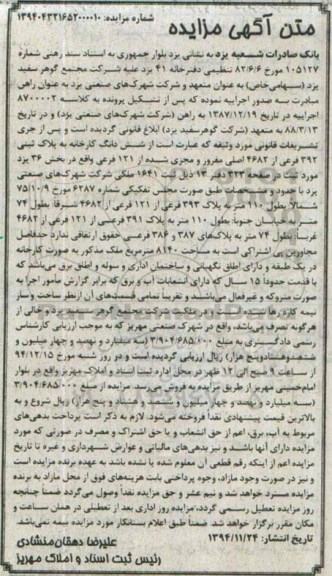 متن آگهی مزایده
شماره مزایده: ۱۳۹۴۰۴۳۲۱۶۵۲۰۰۰۰۱۰
بانک صادرات شعبه یزد به نشانی یزد بلوار جمهوری به استناد سند رهنی شماره
۱۰۵۱۲۷ مورخ ۸۲/۶/۶ تنظیمی دفترخانه ۴۱ یزد علیه شرکت مجتمع گوهر سفید
یزد (سهامی‌خاص) به عنوان متعهد و شرکت شهرک‌های صنعتی یزد به عنوان راهن
مبادرت به صدور اجراییه نموده که پس از تشکیل پرونده به کلاسه ۸۷۰۰۰۰۲
اجراییه در تاریخ ۱۳۸۷/۱۲/۱۹ به راهن (شرکت شهرک‌های صنعتی یزد) و در تاریخ
۸۸/۳/۱۳ به متعهد (شرکت گوهرسفید یزد) ابلاغ قانونی گردیده است و پس از جری
تشریفات قانونی مورد وثیقه که عبارت است از شش دانگ کارخانه به پلاک ثبتی
۳۹۲ فرعی از ۴۶۸۲ اصلی مفروز و مجزی شده از ۱۲۱ فرعی واقع در بخش ۳۶ یزد
مورد ثبت صفحه ۲۲۳ دفتر ۱۳ ذیل ثبت ۱۶۴۱ ملکی شرکت شهرک‌های صنعتی
یزد با حدود و مشخصات طبق صورت مجلس تفکیکی شماره ۶۲۸۷ مورخ ۷۵/۱۰/۹
شمالاً بطول متر به پلاک ۳۹۳ فرعی از ۱۲۱ فرعی از ۴۶۸۲ شرقاً بطول ۷۴
متر به خیابان جنوباً: بطول ۱۱۰ متر به پلاک ۳۹۱ فرعی از ۱۲۱ فرعی از ۴۶۸۲
غرباً بطول ۷۴ متر به پلاک‌های ۳۸۷ و ۳۸۶ فرعی حقوق ارتفاقی ندارد حدفاصل
مجاورین پی اشتراکی است به مساحت ۸۱۴۰ مترمربع ملک مذکور به صورت کارخانه
در یک طبقه و دارای اطاق نگهبانی و ساختمان اداری و سوله و اطاق برق می‌باشد که
با قدمت حدوداً ۱۵ سال که دارای انشعابات آب و برق که برابر گزارش مأمور اجرا به
صورت متروکه و غیرفعال می‌باشد و تقریباً تمامی قسمت‌های آن ازنظر ساخت و ساز
نیمه کاره رها شده است و در ملکیت شرکت مجتمع گوهر سفید یزد و خالی از
هرگونه تصرف می‌باشد. واقع در شهرک صنعتی مهریز که به موجب ارزیابی کارشناس
رسمی دادگستری به مبلغ ۳/۹۰۴/۶۸۵/۰۰۰ (سه میلیارد و نهصد و چهار میلیون و
ششصدوهشتادوپنج هزار) ریال ارزیابی گردیده است و در روز شنبه مورخ ۹۴/۱۲/۱۵
از ساعت ۹ صبح الی ۱۲ ظهر در محل اداره ثبت اسناد و املاک مهریز واقع در بلوار
امام‌خمینی مهریز از طریق مزایده به فروش می‌رسد. مزایده از مبلغ ۳/۹۰۴/۶۸۵/۰۰۰
(سه میلیارد و نهصد و چهار میلیون و ششصد و هشتاد و پنج هزار) ریال شروع و به
بالاترین قیمت پیشنهادی نقداً فروخته می‌شود. لازم به ذکر است پرداخت بدهی‌های
مربوط به آب، برق، اعم از حق انشعاب و یا حق اشتراک و مصرف در صورتی که مورد
مزایده دارای آنها باشد و نیز بدهی‌های مالیاتی و عوارض شهرداری و غیره تا تاریخ
مزایده اعم از اینکه رقم قطعی آن معلوم شده یا نشده باشد به عهده برنده مزایده است
و نیز در صورت وجود مازاد، وجوه پرداختی بابت هزینه‌های فوق از محل مازاد به برنده
مزایده مسترد خواهد شد و نیم عشر و حق مزایده نقداً وصول می‌گردد ضمناً چنانچه
روز مزایده تعطیل رسمی گردد، مزایده روز اداری بعد از تعطیلی در همان ساعت و
مکان مقرر برگزار خواهد شد. ضمناً طبق اعلام بستانکار مورد مزایده بیمه نمی‌باشد.
تاریخ انتشار: ۱۳۹۴/۱۱/۲۴
علیرضا دهقان‌منشادی
رئیس ثبت اسناد و املاک مهریز